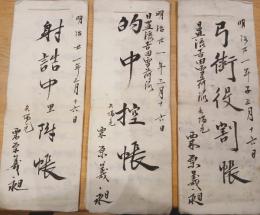 明治廿一年三月十六日
弓術役割帳
日置流吉田雪荷派
栗原義昶
明治廿一年三月十六日
日置流吉田雪荷派
的中控帳
栗原義昶
明治廿一年三月十六日
射詰中里附帳
栗原義昶